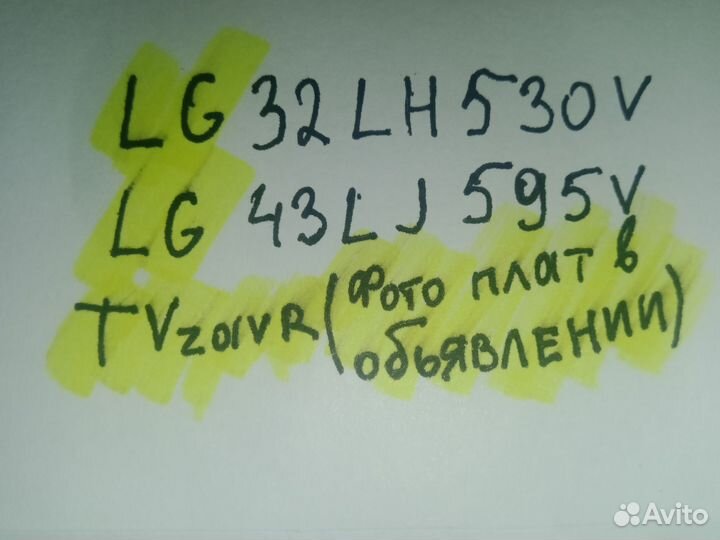 LG 32LH530V
LG 43LJ595V
TVzorVR (Фото плат в
объявлении)
Avito